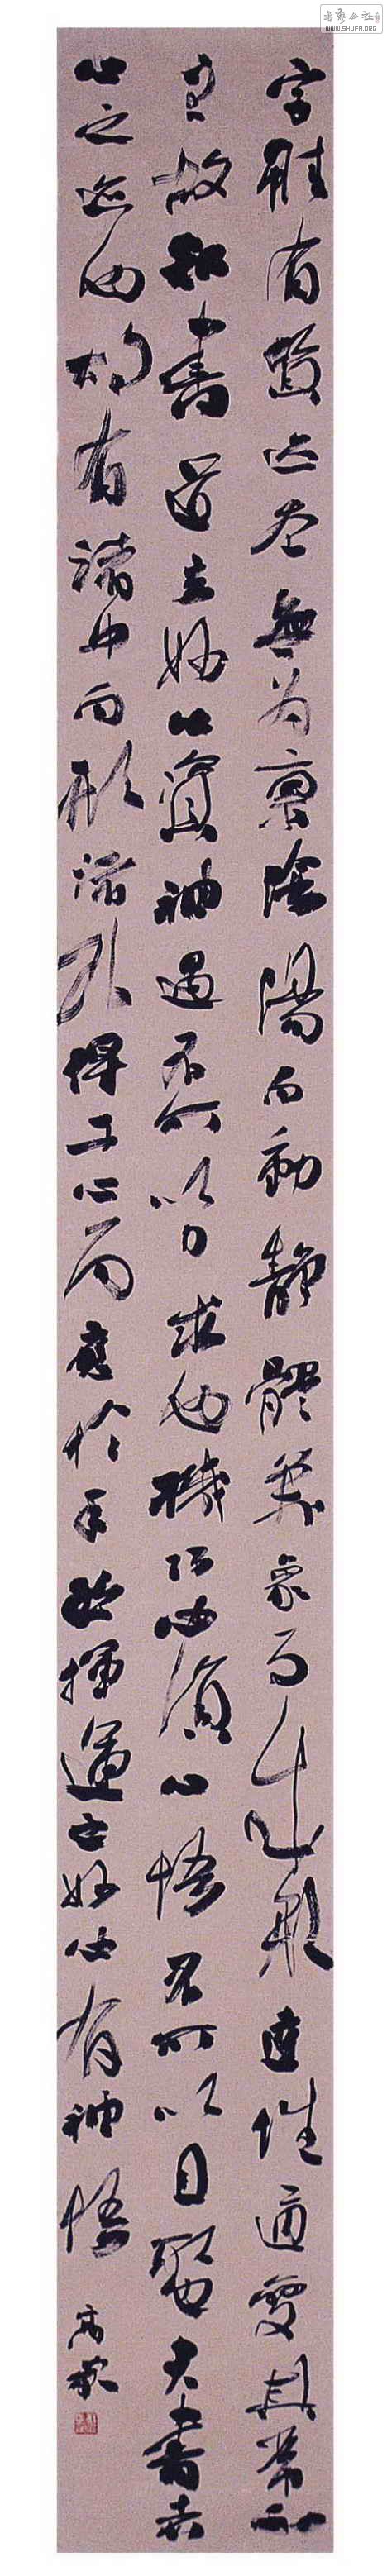 WWW.SHUFA.ORG
字雖有質迹本無為稟陰陽而動靜體萬象而成形達性適變其常不
主故知書道玄妙必資神遇不可以力求也機巧必須心悟不可以目取也夫書者
心之迹也故有諸中而形諸外得于心而應於手然揮運之妙必有神悟